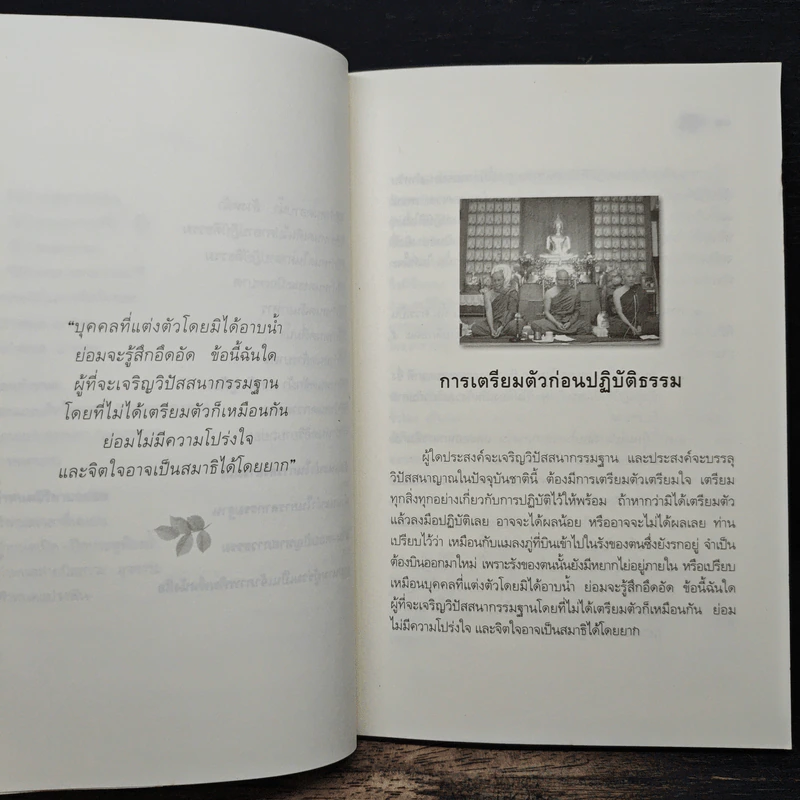 “บุคคลที่แต่งตัวโดยมิได้อาบน้ำ
ย่อมจะรู้สึกอึดอัด ข้อนี้ฉันใด
ผู้ที่จะเจริญวิปัสสนากรรมฐาน
โดยที่ไม่ได้เตรียมตัวก็เหมือนกัน
ย่อมไม่มีความโปร่งใจ
และจิตใจอาจเป็นสมาธิได้โดยยาก”
การเตรียมตัวก่อนปฏิบัติธรรม
ผู้ใดประสงค์จะเจริญวิปัสสนากรรมฐาน และประสงค์จะบรรลุ
วิปัสสนาญาณในปัจจุบันชาตินี้ ต้องมีการเตรียมตัวเตรียมใจ เตรียม
ทุกสิ่งทุกอย่างเกี่ยวกับการปฏิบัติไว้ให้พร้อม ถ้าหากว่ามิได้เตรียมตัว
แล้วลงมือปฏิบัติเลย อาจจะได้ผลน้อย หรืออาจจะไม่ได้ผลเลย ท่าน
เปรียบไว้ว่า เหมือนกับแมลงภู่ที่บินเข้าไปในรังของตนซึ่งยังรกอยู่ จำเป็น
ต้องบินออกมาใหม่ เพราะรังของตนนั้นยังมีหยากไย่อยู่ภายใน หรือเปรียบ
เหมือนบุคคลที่แต่งตัวโดยมิได้อาบน้ำ ย่อมจะรู้สึกอึดอัด ข้อนี้ฉันใด
ผู้ที่จะเจริญวิปัสสนากรรมฐานโดยที่ไม่ได้เตรียมตัวก็เหมือนกัน ย่อม
ไม่มีความโปร่งใจ และจิตใจอาจเป็นสมาธิได้โดยยาก